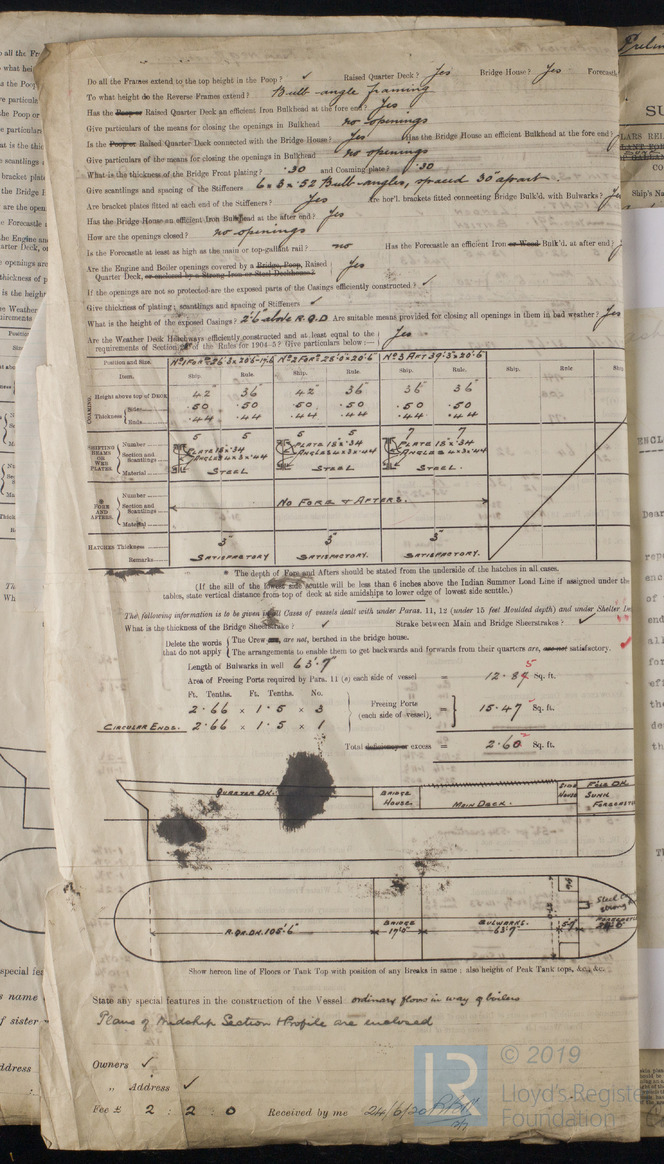 Do all the Frames extend to the top height in the Poop? ✓ Raised Quarter Deck? Yes Bridge House? Yes Forecastl
To what height do the Reverse Frames extend? Bulb angle framing
Has the Poop or Raised Quarter Deck an efficient Iron Bulkhead at the fore end? Yes
Give particulars of the means for closing the openings in Bulkhead no openings
Is the Poop or Raised Quarter Deck connected with the Bridge House? Yes Has the Bridge House an efficient Bulkhead at the fore end?
Give particulars of the means for closing the openings in Bulkhead no openings
What is the thickness of the Bridge Front plating? .30 and Coaming plate? .30
Give scantlings and spacing of the Stiffeners 6 x 3 x .52 Bulb angles, spaced 30" apart.
Are bracket plates fitted at each end of the Stiffeners? Yes Are hor'l. brackets fitted connecting Bridge Bulk'd. with Bulwarks?
Has the Bridge House an efficient Iron Bulkhead at the after end? Yes
How are the openings closed? no openings
Is the Forecastle at least as high as the main or top-gallant rail? no Has the Forecastle an efficient Iron or Wood Bulk'd. at after end?
Are the Engine and Boiler openings covered by a Bridge, Poop, Raised Quarter Deck, or enclosed by a Strong Iron or Steel Deckhouse? Yes
If the openings are not so protected are the exposed parts of the Casings efficiently constructed? ✓
Give thickness of plating; scantlings and spacing of Stiffeners ✓
What is the height of the exposed Casings? 2'6" above R.Q.D. Are suitable means provided for closing all openings in them in bad weather? Yes
Are the Weather Deck Hatchways efficiently constructed and at least equal to the Yes
requirements of Section of the Rules for 1904-5? Give particulars below:—
Position and Size. No 1 Fore 26.3 x 20.6-17.6 No 2 Fore 28.0 x 20.6 No 3 Aft 39.3 x 20.6
Item. Ship. Rule. Ship. Rule. Ship. Rule. Ship. Rule Ship.
COAMING Height above top of Deck 42" 36" 42" 36" 36" 36"
Thickness Sides .50 .50 .50 .50 .50 .50
Ends .44 .44 .44 .44 .44 .44
SHIFTING BEAMS OR WEB PLATES Number 5 5 5 5 7 7
Section and Scantlings PLATE 18 x .34 ANGLES 4 x 3 x .44 PLATE 18 x .34 ANGLES 4 x 3 x .44 PLATE 18 x .34 ANGLES 4 x 3 x .44
Material STEEL STEEL STEEL.
FORE AND AFTERS. Number
Section and Scantlings NO FORE & AFTERS.
Material
HATCHES Thickness 3" 3" 3"
Remarks SATISFACTORY SATISFACTORY. SATISFACTORY.
* The depth of Fore and Afters should be stated from the underside of the hatches in all cases.
(If the sill of the lowest side scuttle will be less than 6 inches above the Indian Summer Load Line if assigned under the
tables, state vertical distance from top of deck at side amidships to lower edge of lowest side scuttle.)
The following information is to be given in all Cases of vessels dealt with under Paras. 11, 12 (under 15 feet Moulded depth) and under Shelter De
What is the thickness of the Bridge Sheerstrake? ✓ Strake between Main and Bridge Sheerstrakes? ✓
Delete the words that do not apply
The Crew are, are not, berthed in the bridge house.
The arrangements to enable them to get backwards and forwards from their quarters are, are not satisfactory.
Length of Bulwarks in well 63'.9"
Area of Freeing Ports required by Para. 11 (e) each side of vessel = 12.84 5 Sq. ft.
Ft. Tenths. Ft. Tenths. No.
2.66 x 1.5 x 3
CIRCULAR ENDS. 2.66 x 1.5 x 1
Freeing Ports (each side of vessel); = 15.47 Sq. ft.
Total deficiency or excess = 2.60 Sq. ft.
QUARTER DK. BRIDGE HOUSE. MAIN DECK. SIDE HOUSE F'CLE DK SUNK FORECASTLE
R.QR.DK.105'.6" BRIDGE 17'.0" BULWARKS. 63'.9"
Show hereon line of Floors or Tank Top with position of any Breaks in same; also height of Peak Tank tops, &c., &c.
State any special features in the construction of the Vessel ordinary floors in way of boilers
Plans of Midship Section & Profile are enclosed
Owners ✓
„ Address ✓
Fee £ 2 : 2 : 0 Received by me 24/6/20
LR
© 2019
Lloyd's Register
Foundation